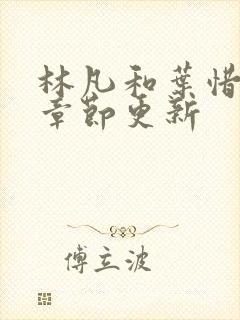 林凡和葉惜
章節更新
傅立波